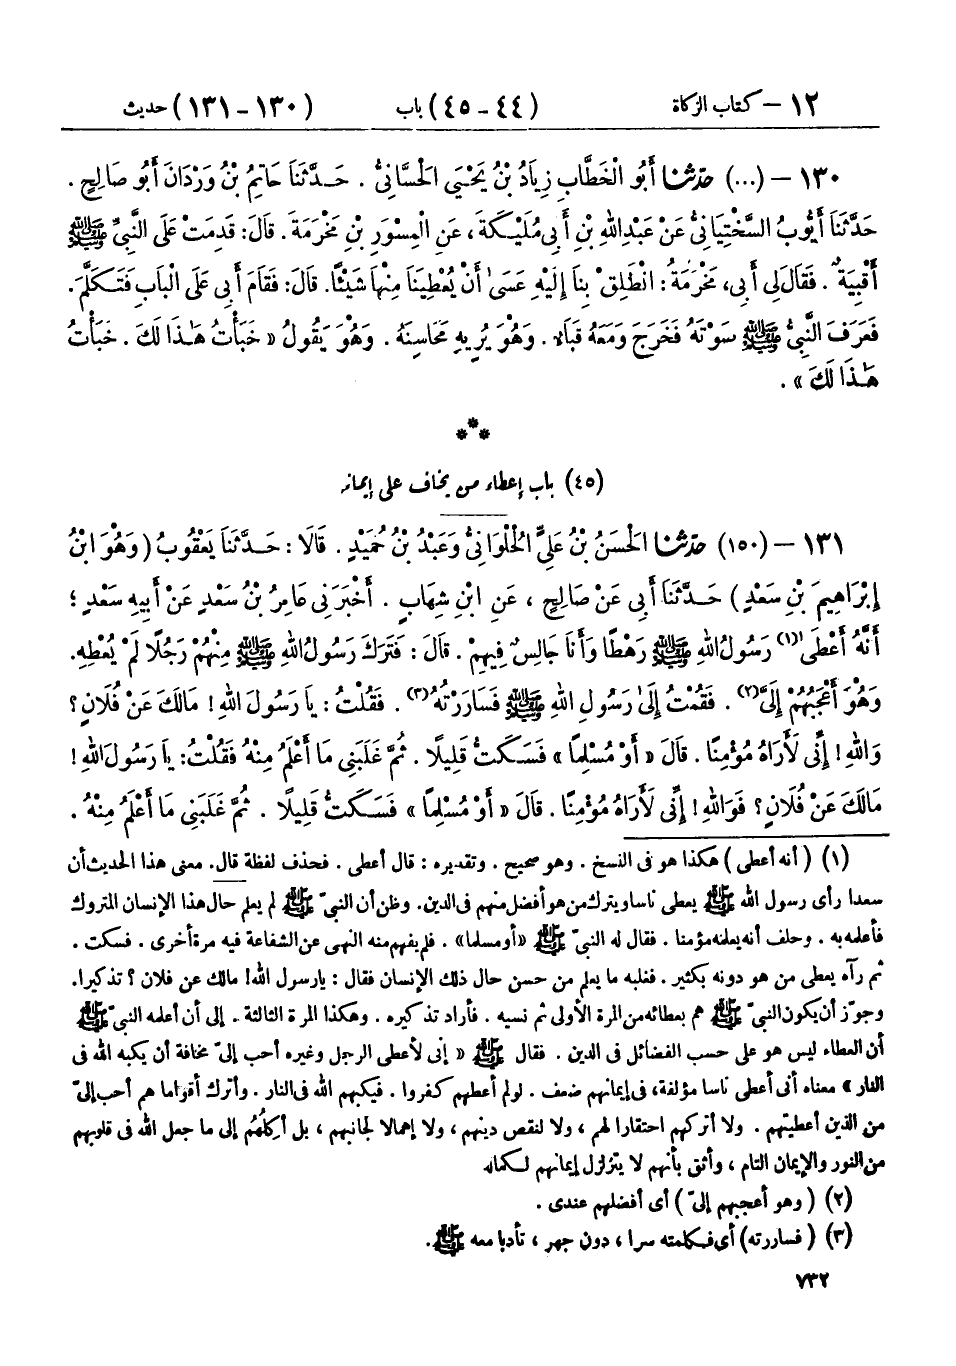 ١٢ – كتاب الزكاة (٤٤ - ٤٥) باب (١٣٠ - ١٣١) حديث
١٣٠ – (...) حَدَّثَنَا أَبُو الْخَطَّابِ زِيَادُ بْنُ يَحْيَى الْحَسَّانِيُّ . حَدَّثَنَا حَاتِمُ بْنُ وَرْدَانَ أَبُو صَالِحٍ .
حَدَّثَنَا أَيُّوبُ السَّخْتِيَانِيُّ عَنْ عَبْدِ اللهِ بْنِ أَبِي مُلَيْكَةَ ، عَنِ الْمِسْوَرِ بْنِ مَخْرَمَةَ . قَالَ: قَدِمَتْ عَلَى النَّبِيِّ ﷺ
أَقْبِيَةٌ . فَقَالَ لِي أَبِي، مَخْرَمَةُ : انْطَلِقْ بِنَا إِلَيْهِ عَسَىٰ أَنْ يُعْطِيَنَا مِنْهَا شَيْئًا. قَالَ: فَقَامَ أَبِي عَلَى الْبَابِ فَتَكَلَّمَ.
فَعَرَفَ النَّبِيُّ ﷺ صَوْتَهُ فَخَرَجَ وَمَعَهُ قَبَاءٌ . وَهُوَ يُرِيهِ مَحَاسِنَهُ . وَهُوَ يَقُولُ « خَبَأْتُ هَٰذَا لَكَ . خَبَأْتُ
هَٰذَا لَكَ » .
***
(٤٥) باب إعطاء من يخاف على إيمانه
١٣١ – (١٥٠) حَدَّثَنَا الْحَسَنُ بْنُ عَلِيٍّ الْحُلْوَانِيُّ وَعَبْدُ بْنُ حُمَيْدٍ . قَالَا : حَدَّثَنَا يَعْقُوبُ (وَهُوَ ابْنُ
إِبْرَاهِيمَ بْنِ سَعْدٍ) حَدَّثَنَا أَبِي عَنْ صَالِحٍ ، عَنِ ابْنِ شِهَابٍ . أَخْبَرَنِي عَامِرُ بْنُ سَعْدٍ عَنْ أَبِيهِ سَعْدٍ ؛
أَنَّهُ أَعْطَىٰ (١) رَسُولُ اللهِ ﷺ رَهْطًا وَأَنَا جَالِسٌ فِيهِمْ . قَالَ : فَتَرَكَ رَسُولُ اللهِ ﷺ مِنْهُمْ رَجُلًا لَمْ يُعْطِهِ.
وَهُوَ أَعْجَبُهُمْ إِلَيَّ (٢) . فَقُمْتُ إِلَىٰ رَسُولِ اللهِ ﷺ فَسَارَرْتُهُ (٣) . فَقُلْتُ : يَا رَسُولَ اللهِ ! مَالَكَ عَنْ فُلَانٍ ؟
وَاللهِ ! إِنِّي لَأَرَاهُ مُؤْمِنًا . قَالَ « أَوْ مُسْلِمًا » فَسَكَتُّ قَلِيلًا . ثُمَّ غَلَبَنِي مَا أَعْلَمُ مِنْهُ فَقُلْتُ: يَا رَسُولَ اللهِ !
مَالَكَ عَنْ فُلَانٍ ؟ فَوَاللهِ ! إِنِّي لَأَرَاهُ مُؤْمِنًا . قَالَ « أَوْ مُسْلِمًا » فَسَكَتُّ قَلِيلًا . ثُمَّ غَلَبَنِي مَا أَعْلَمُ مِنْهُ .
(١) ( أنه أعطى ) هكذا هو في النسخ . وهو صحيح . وتقديره : قال أعطى . فحذف لفظة قال. معنى هذا الحديث أن
سعدا رأى رسول الله ﷺ يعطى ناسا ويترك من هو أفضل منهم في الدين. وظن أن النبيّ ﷺ لم يعلم حال هذا الإنسان المتروك
فأعلمه به . وحلف أنه يعلمه مؤمنا . فقال له النبيّ ﷺ «أو مسلما» . فلم يفهم منه النهى عن الشفاعة فيه مرة أخرى . فسكت .
ثم رآه يعطى من هو دونه بكثير . فغلبه ما يعلم من حسن حال ذلك الإنسان فقال : يا رسول الله! مالك عن فلان ؟ تذكيرا.
وجوّز أن يكون النبيّ ﷺ هم بعطائه من المرة الأولى ثم نسيه . فأراد تذكيره . وهكذا المرة الثالثة . إلى أن أعلمه النبيّ ﷺ
أن العطاء ليس هو على حسب الفضائل في الدين . فقال ﷺ « إني لأعطى الرجل وغيره أحب إلىّ مخافة أن يكبه الله في
النار » معناه أنى أعطى ناسا مؤلفة، في إيمانهم ضعف . لو لم أعطهم كفروا . فيكبهم الله في النار . وأترك أقواما هم أحب إلىّ
من الذين أعطيتهم . ولا أتركهم احتقارا لهم ، ولا لنقص دينهم ، ولا إهمالا لجانبهم ، بل أَكِلُهُم إلى ما جعل الله في قلوبهم
من النور والإيمان التام ، وأثق بأنهم لا يتزلزل إيمانهم لكماله
(٢) ( وهو أعجبهم إلىّ ) أى أفضلهم عندى .
(٣) ( فساررته) أى فكلمته سرا ، دون جهر ، تأدبا معه ﷺ.
٧٣٢